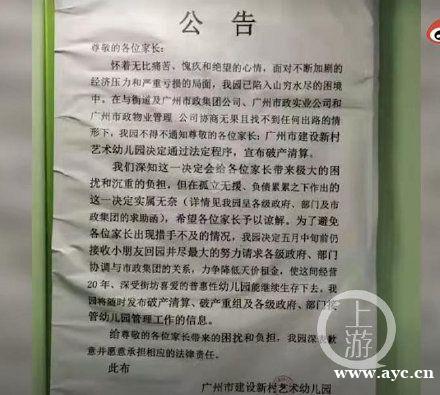 公告
尊敬的各位家长：
怀着无比痛苦、愧疚和绝望的心情，面对不断加剧的
经济压力和严重亏损的局面，我园已陷入山穷水尽的困境
中。在与街道及广州市政集团公司、广州市政实业公司和
广州市政物业管理 公司协商无果且找不到任何出路的情
形下，我园不得不通知尊敬的各位家长：广州市建设新村
艺术幼儿园决定通过法定程序，宣布破产清算。
我们深知这一决定会给各位家长带来极大的困
扰和沉重的负担，但在孤立无援、负债累累之下作出的
这一决定实属无奈（详情见我园呈各级政府、部门及市
政集团的求助函），希望各位家长予以谅解。为了避免
各位家长出现措手不及的情况，我园决定五月中旬前仍
接收小朋友回园并尽最大的努力请求各级政府、部门
协调与市政集团的关系，力争降低天价租金，使这间经营
20年、深受街坊喜爱的普惠性幼儿园能继续生存下去，我
园将随时发布破产清算、破产重组及各级政府、部门接
管幼儿园管理工作的信息。
给尊敬的各位家长带来的困扰和负担，我园深表歉
意并愿意承担相应的法律责任。
此布
广州市建设新村艺术幼儿园
上游
www.ayc.cn